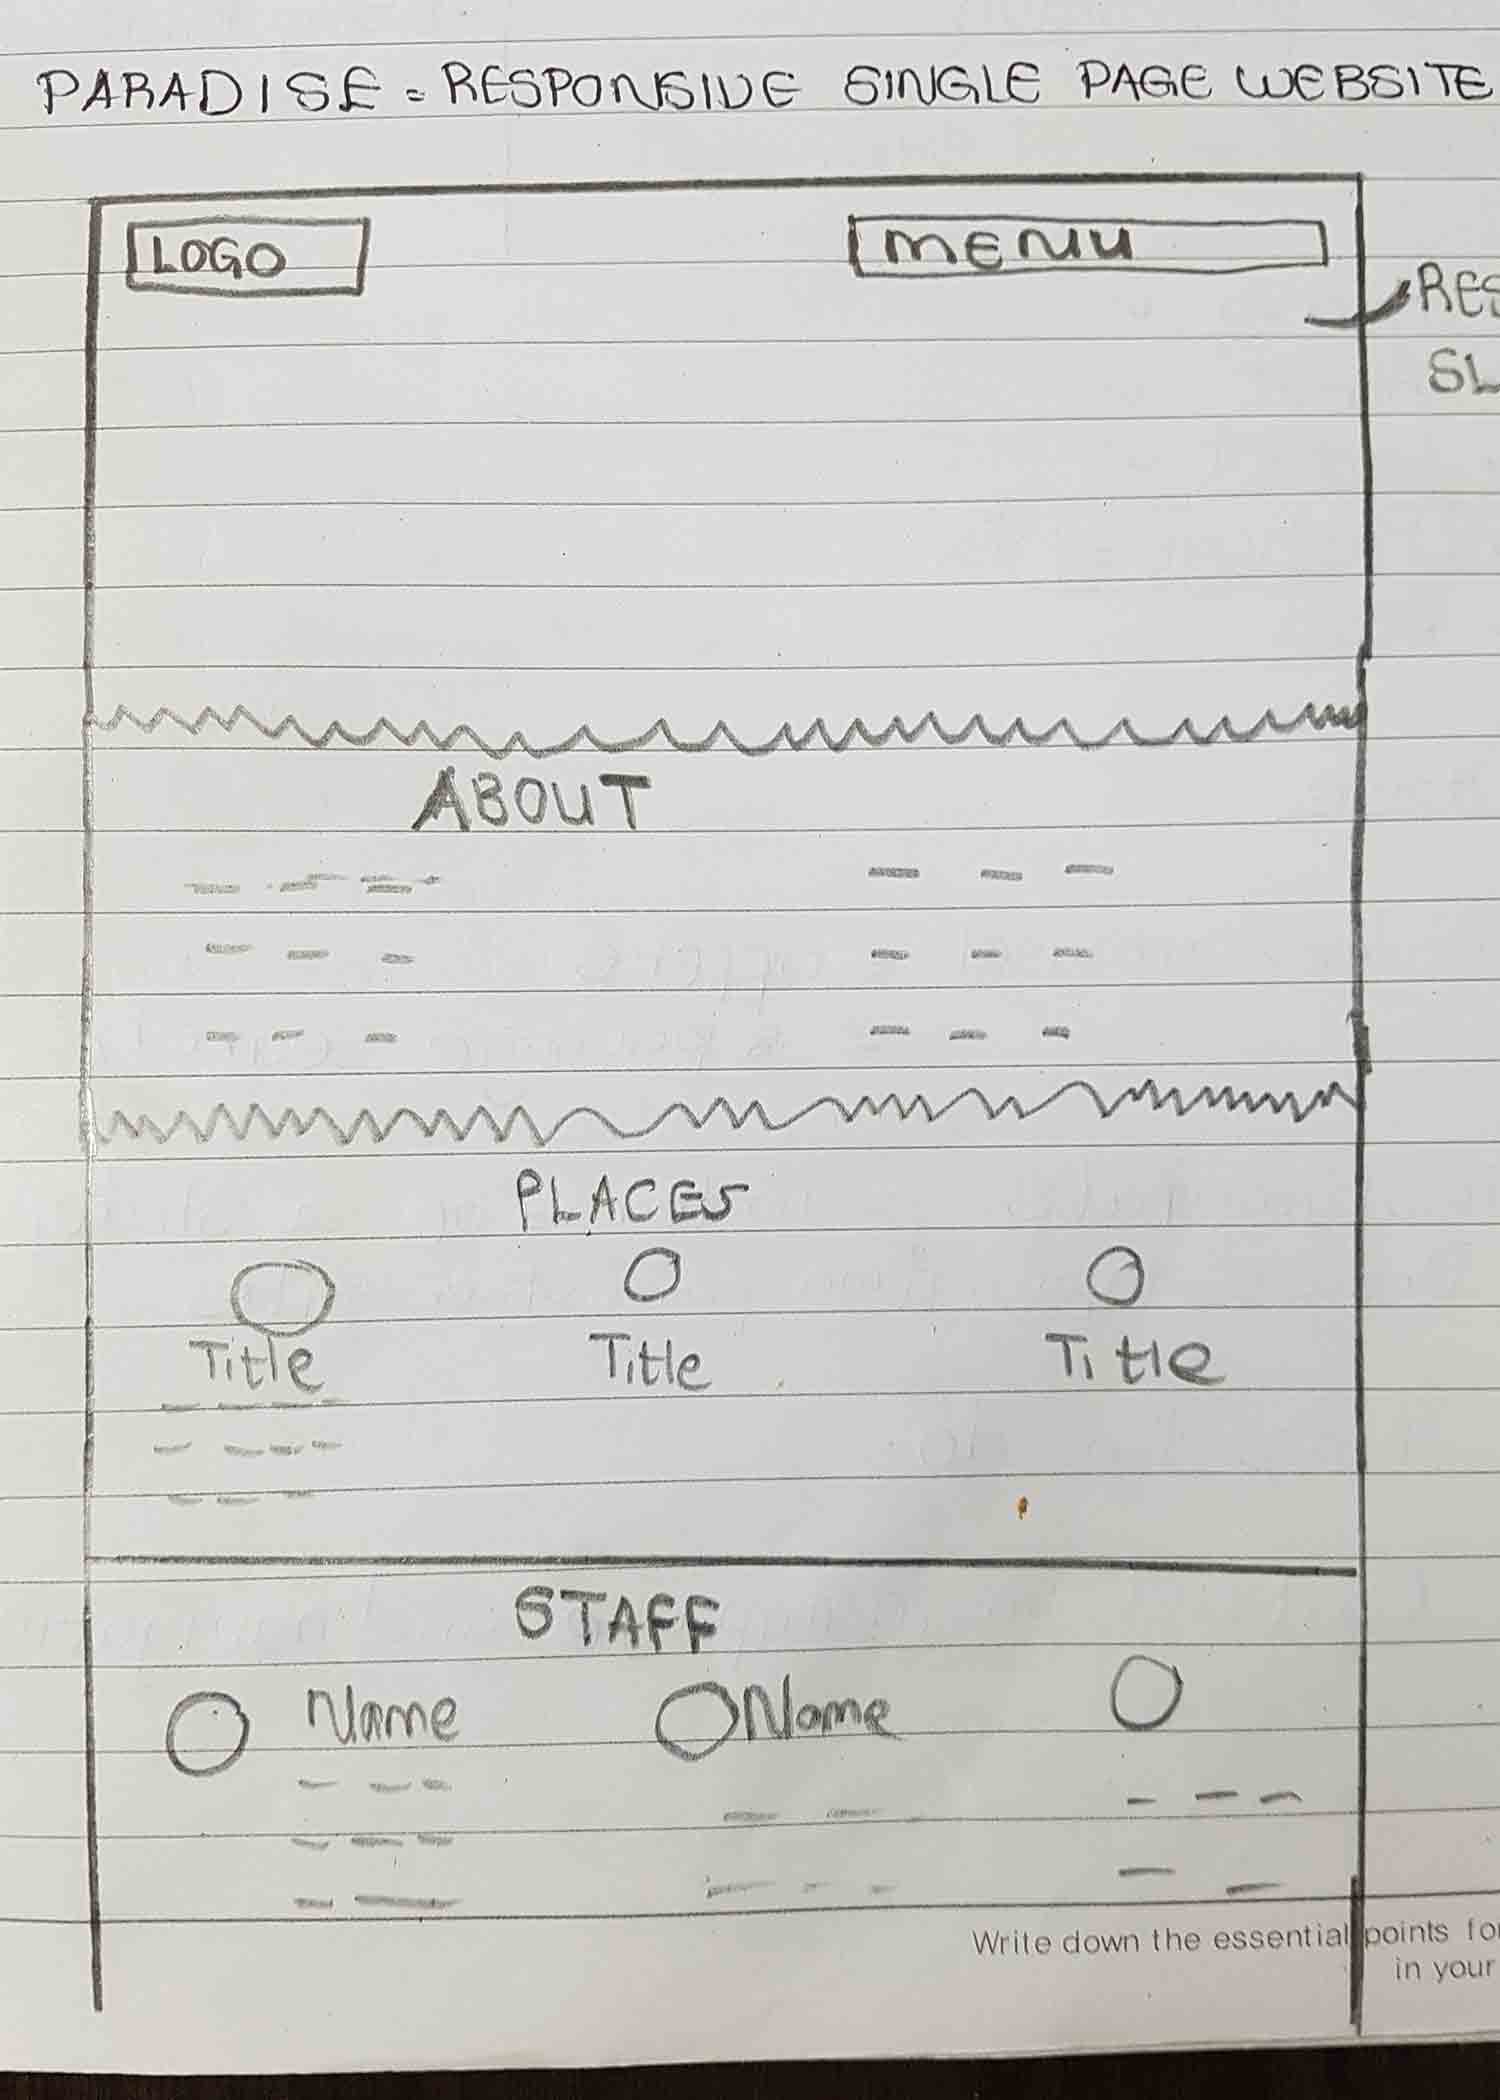 PARADISE = RESPONSIVE SINGLE PAGE WEBSITE
LOGO
MENU
RES
SL
ABOUT
PLACES
Title Title Title
STAFF
Name Name
Write down the essential points fo
in your